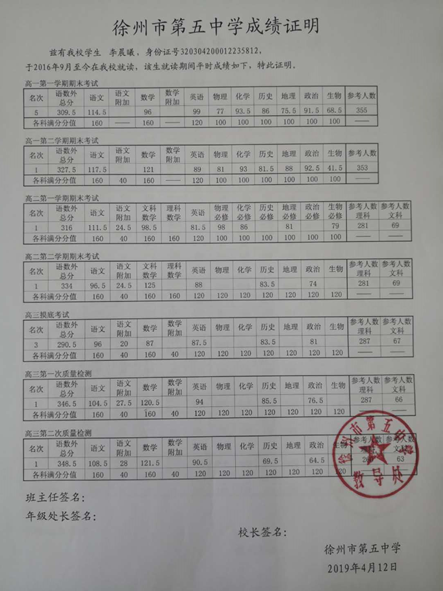 徐州市第五中学成绩证明
兹有我校学生 李晨曦，身份证号320304200012235812，
于2016年9月至今在我校就读，该生就读期间平时成绩如下，特此证明。
高一第一学期期末考试
名次 语数外总分 语文 语文附加 数学 数学附加 英语 物理 化学 历史 地理 政治 生物 参考人数
5 309.5 114.5 96 99 77 93.5 86 75.5 91.5 68.5 355
各科满分分值 160 —— 160 —— 120 100 100 100 100 100 100 ——
高一第二学期期末考试
名次 语数外总分 语文 语文附加 数学 数学附加 英语 物理 化学 历史 地理 政治 生物 参考人数
1 327.5 117.5 121 89 81 93 81.5 88 92.5 41.5 353
各科满分分值 160 40 160 —— 120 100 100 100 100 100 100 ——
高二第一学期期末考试
名次 语数外总分 语文 语文附加 文科数学 理科数学 英语 物理必修 化学必修 历史必修 地理必修 政治必修 生物必修 参考人数理科 参考人数文科
1 316 111.5 24.5 98.5 81.5 98 86 81 79 281 69
各科满分分值 160 40 160 160 120 100 100 100 100 100 100 —— ——
高二第二学期期末考试
名次 语数外总分 语文 语文附加 文科数学 理科数学 英语 物理 化学 历史 地理 政治 生物 参考人数理科 参考人数文科
1 334 96.5 24.5 125 88 83.5 74 281 69
各科满分分值 160 40 160 160 120 120 120 120 120 120 120 —— ——
高三摸底考试
名次 语数外总分 语文 语文附加 数学 数学附加 英语 物理 化学 历史 地理 政治 生物 参考人数理科 参考人数文科
3 290.5 96 20 87 87.5 83.5 81 287 67
各科满分分值 160 40 160 40 120 120 120 120 120 120 120 —— ——
高三第一次质量检测
名次 语数外总分 语文 语文附加 数学 数学附加 英语 物理 化学 历史 地理 政治 生物 参考人数理科 参考人数文科
1 346.5 104.5 27.5 120.5 94 85.5 76.5 287 66
各科满分分值 160 40 160 40 120 120 120 120 120 120 120
高三第二次质量检测
名次 语数外总分 语文 语文附加 数学 数学附加 英语 物理 化学 历史 地理 政治
1 348.5 108.5 28 121.5 90.5 69.5 64.5 63
各科满分分值 160 40 160 40 120 120 120 120 120 120
徐州市第五中学
教导处
班主任签名：
年级处长签名：
校长签名：
徐州市第五中学
2019年4月12日